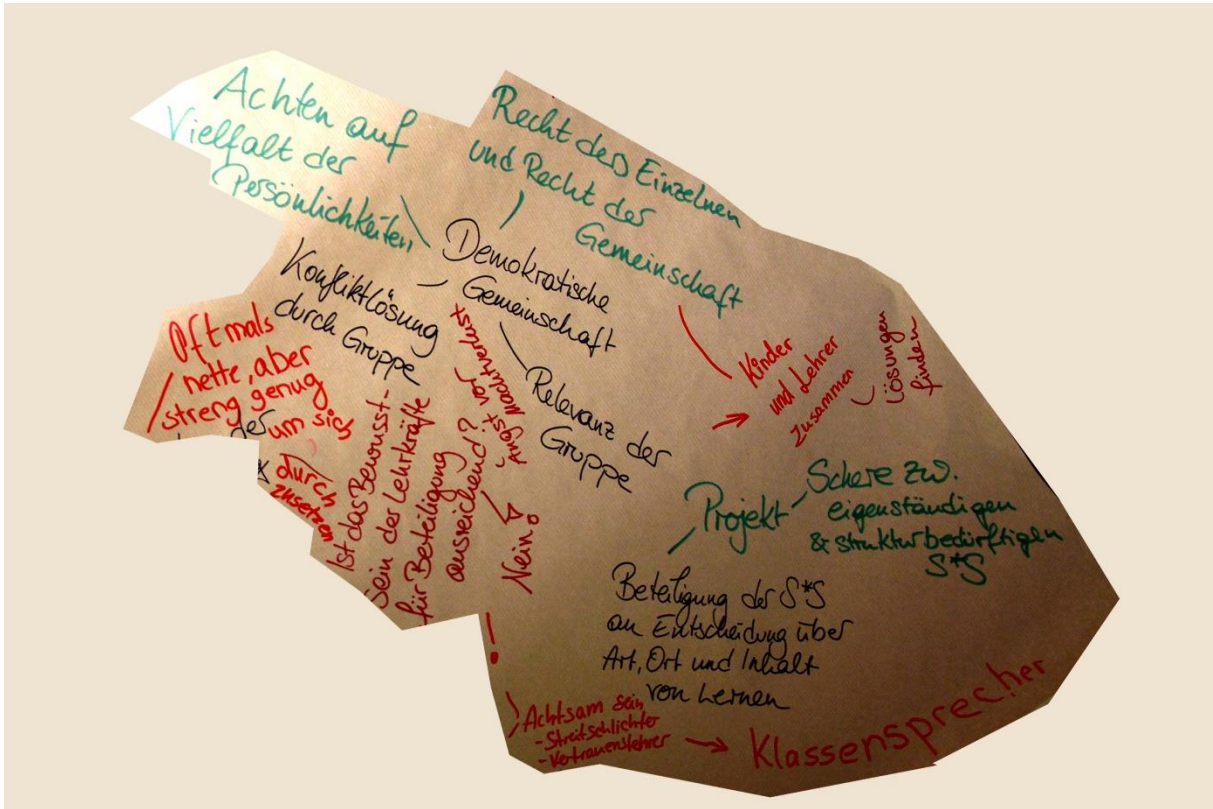 Achten auf
Vielfalt der
Persönlichkeiten
Recht des Einzelnen
und Recht der
Gemeinschaft
Demokratische
Gemeinschaft
Konfliktlösung
durch Gruppe
Oftmals
nette, aber
streng genug
um sich
durch
zusetzen
der
Ist das Bewusst-
sein der Lehrkräfte
für Beteiligung
ausreichend?
Nein!
Angst vor
Machtverlust
Relevanz der
Gruppe
Kinder
und Lehrer
zusammen
Lösungen
finden
Projekt
Schere zw.
eigenständigen
& strukturbedürftigen
S*S
Beteiligung der S*S
an Entscheidung über
Art, Ort und Inhalt
von Lernen
!
Achtsam sein
- Streitschlichter
- Vertrauenslehrer
Klassensprecher